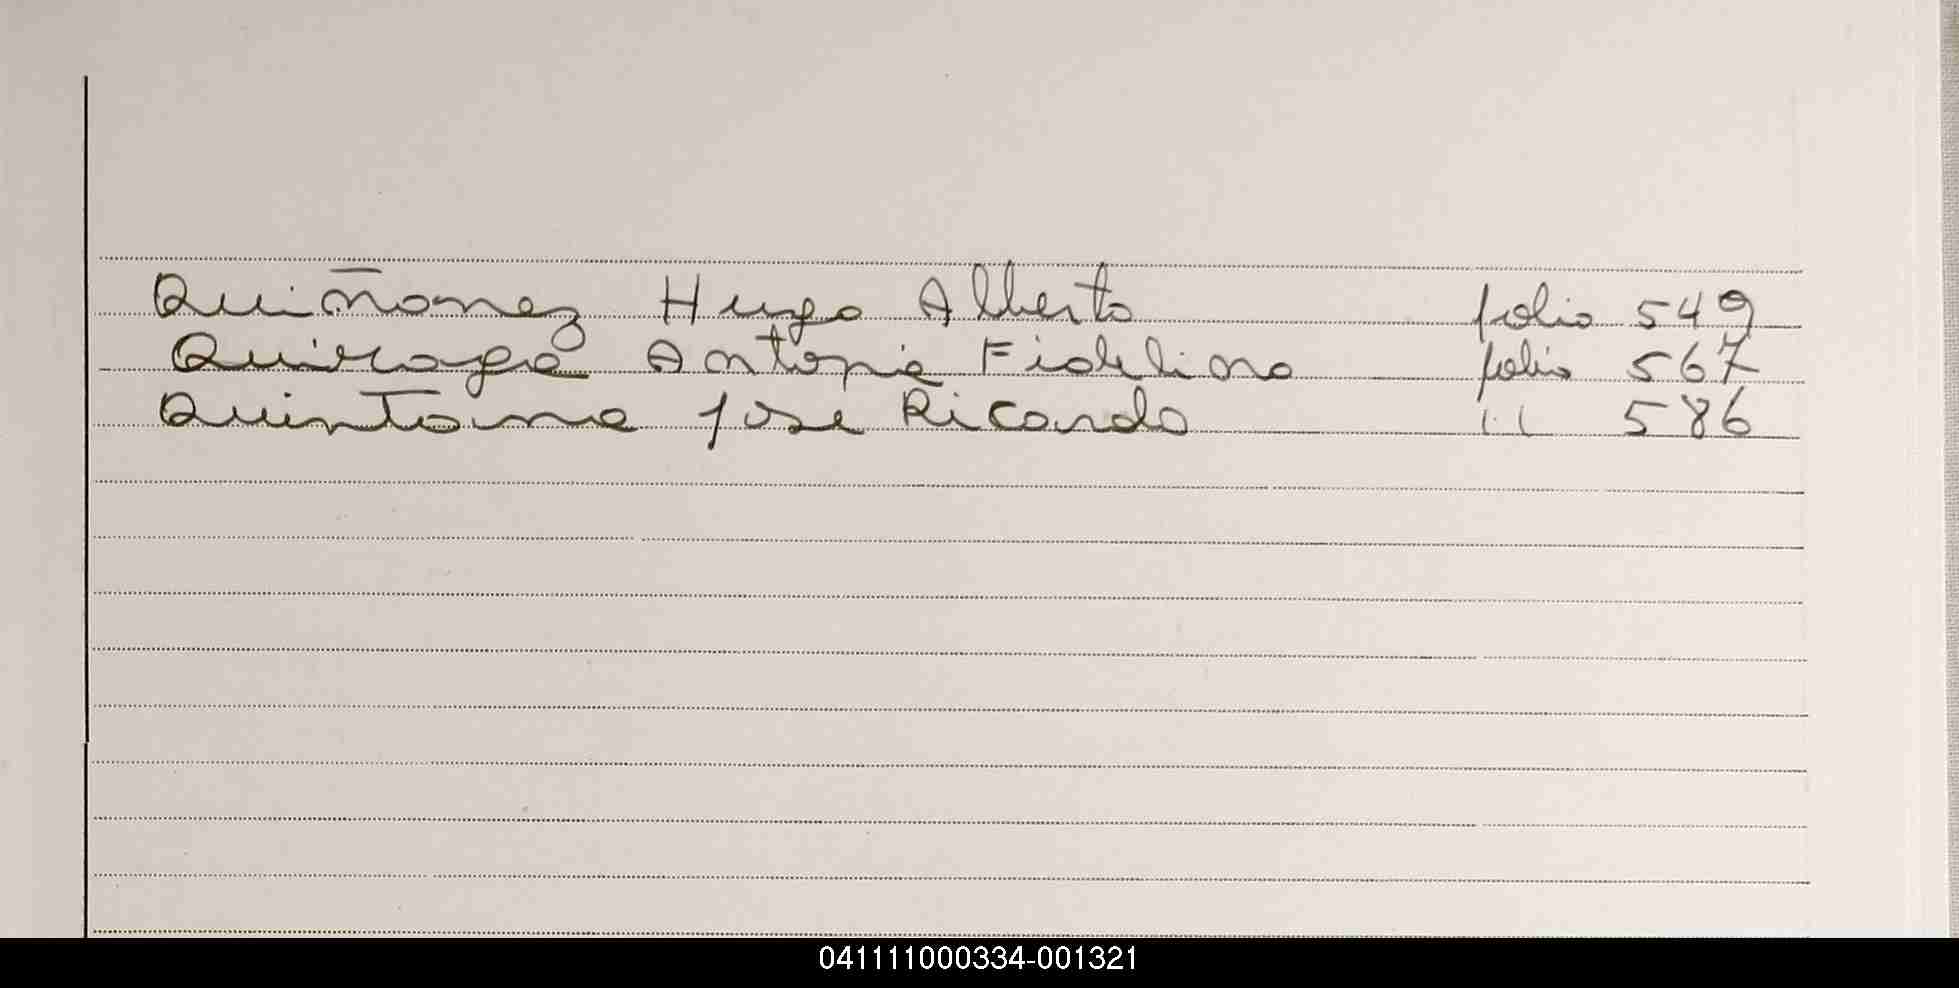 Quiñonez Hugo Alberto folio 549
Quiroga Antonia Fidelina folio 567
Quintana Jose Ricardo " 586
041111000334-001321